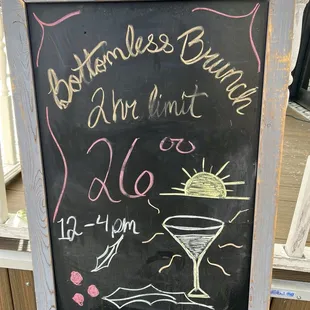 Bottomless Brunch
2hr limit
26⁰⁰
12-4pm